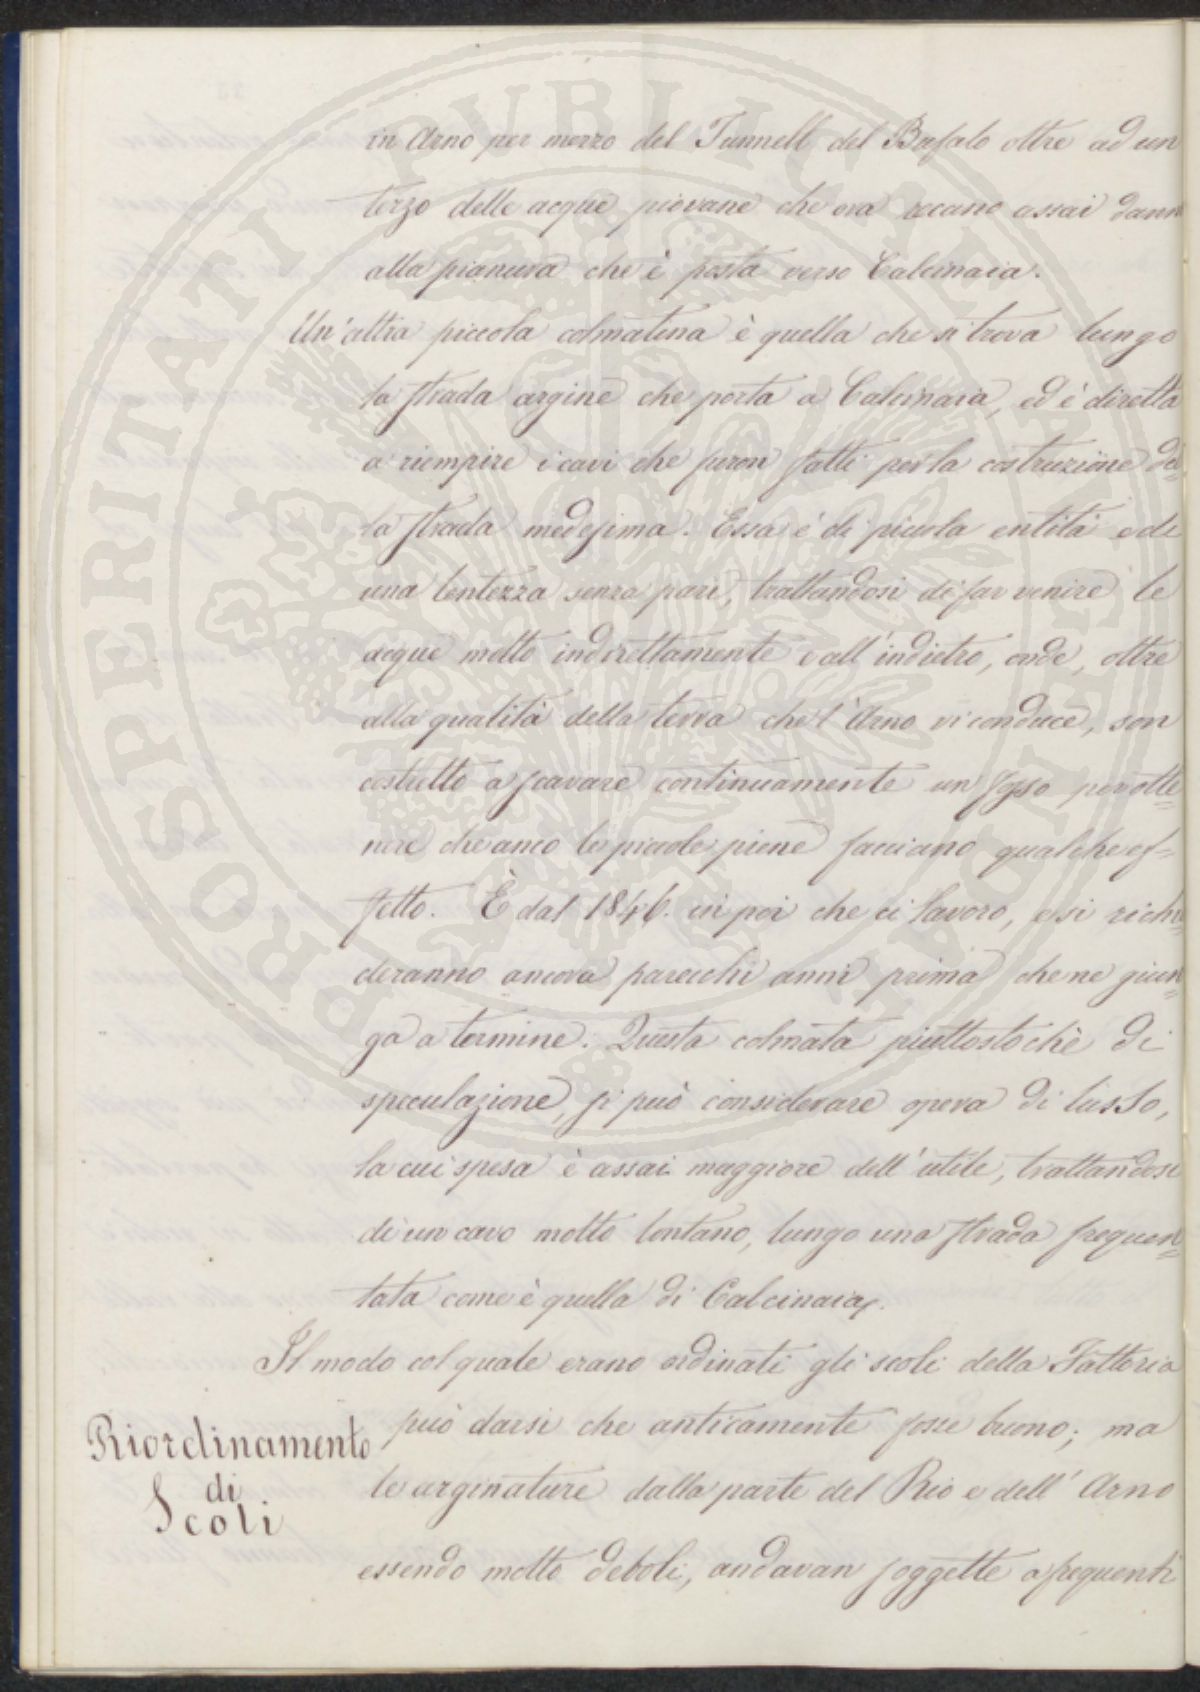 PROSPERITATI PUBLICAE AUGENDAE
in Arno per mezzo del Tunnell del Bufalo oltre ad un
terzo delle acque piovane che ora recano assai dann
alla pianura che è posta verso Calcinaia.
Un'altra piccola colmatina è quella che si trova lungo
la strada argine che porta a Calcinaia, ed è diretta
a riempire i cavi che furon fatti per la costruzione del=
la strada medesima. Essa è di piccola entità e di
una lentezza senza pari, trattandosi di far venire le
acque molto indirettamente e all'indietro, onde, oltre
alla qualità della terra che l'Arno vi conduce, son
costretto a scavare continuamente un fosso per otte=
nere che anco le piccole piene facciano qualche ef=
fetto. È dal 1846. in poi che ci lavoro, e si richie=
deranno ancora parecchi anni prima che ne giun=
ga a termine. Questa colmata piuttostochè di
speculazione, si può considerare opera di lusso,
la cui spesa è assai maggiore dell'utile, trattandosi
di un cavo molto lontano, lungo una strada frequen=
tata come è quella di Calcinaia.
Il modo col quale erano ordinati gli scoli della Fattoria
può darsi che anticamente fosse buono; ma
le arginature dalla parte del Rio e dell'Arno
essendo molto deboli, andavan soggette a frequenti
Riordinamento
di
Scoli